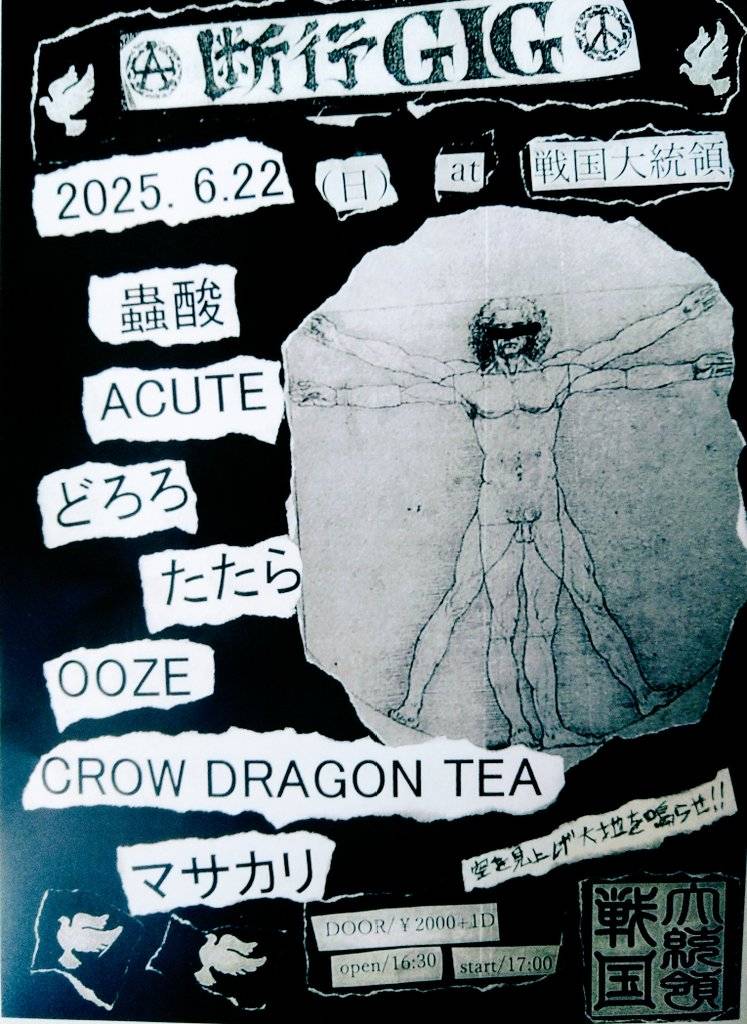 断行GIG
2025. 6.22 (日) at 戦国大統領
蟲酸
ACUTE
どろろ
たたら
OOZE
CROW DRAGON TEA
マサカリ
空を見上げ大地を鳴らせ!!
DOOR/¥2000+1D
open/16:30 start/17:00
大統領
戦国